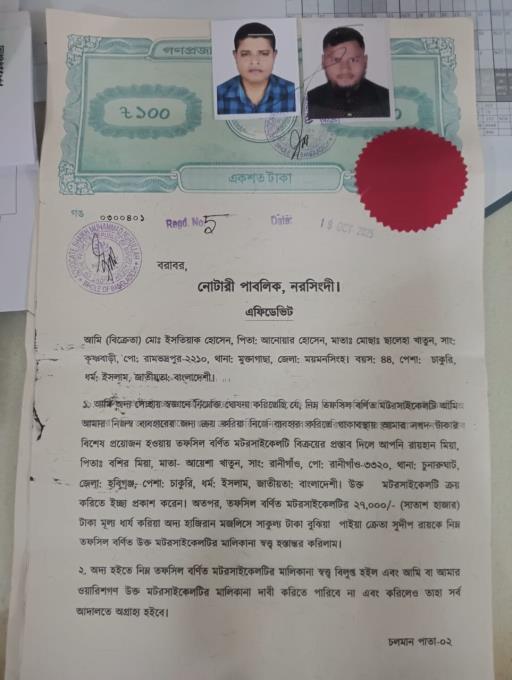 গণপ্রজা
৳১০০
একশত টাকা
গঙ ০৩০০৪০১
Regd. No 5 Date: 19 OCT 2025
WHOLE OF BANGLADESH
বরাবর,
নোটারী পাবলিক, নরসিংদী।
এফিডেভিট
আমি (বিক্রেতা) মোঃ ইসতিয়াক হোসেন, পিতা: আনোয়ার হোসেন, মাতাঃ মোছাঃ ছালেহা খাতুন, সাং:
কৃষ্ণবাড়ী, পো: রামভদ্রপুর-২২১০, থানা: মুক্তাগাছা, জেলা: ময়মনসিংহ। বয়স: ৪৪, পেশা: চাকুরি,
ধর্ম: ইসলাম, জাতীয়তা: বাংলাদেশী।
১. আমি অদ্য স্বেচ্ছায় স্বজ্ঞানে নিম্নোক্ত ঘোষনা করিতেছি যে, নিম্ন তফসিল বর্ণিত মটরসাইকেলটি আমি
আমার নিজস্ব ব্যবহারের জন্য ক্রয় করিয়া নিজে ব্যবহার করিতে থাকাবস্থায় আমার নগদ টাকার
বিশেষ প্রয়োজন হওয়ায় তফসিল বর্ণিত মটরসাইকেলটি বিক্রয়ের প্রস্তাব দিলে আপনি রায়হান মিয়া,
পিতাঃ বশির মিয়া, মাতা- আয়েশা খাতুন, সাং: রানীগাঁও, পো: রানীগাঁও-৩৩২০, থানা: চুনারুঘাট,
জেলা: হবিগঞ্জ, পেশা: চাকুরি, ধর্ম: ইসলাম, জাতীয়তা: বাংলাদেশী। উক্ত মটরসাইকেলটি ক্রয়
করিতে ইচ্ছা প্রকাশ করেন। অতপর, তফসিল বর্ণিত মটরসাইকেলটির ২৭,০০০/- (সাতাশ হাজার)
টাকা মূল্য ধার্য করিয়া অদ্য হাজিরান মজলিসে সাকুল্য টাকা বুঝিয়া পাইয়া ক্রেতা সুদীপ রায়কে নিম্ন
তফসিল বর্ণিত উক্ত মটরসাইকেলটির মালিকানা স্বত্ত্ব হস্তান্তর করিলাম।
২. অদ্য হইতে নিম্ন তফসিল বর্ণিত মটরসাইকেলটির মালিকানা স্বত্ত্ব বিলুপ্ত হইল এবং আমি বা আমার
ওয়ারিশগণ উক্ত মটরসাইকেলটির মালিকানা দাবী করিতে পারিবে না এবং করিলেও তাহা সর্ব
আদালতে অগ্রাহ্য হইবে।
চলমান পাতা-০২